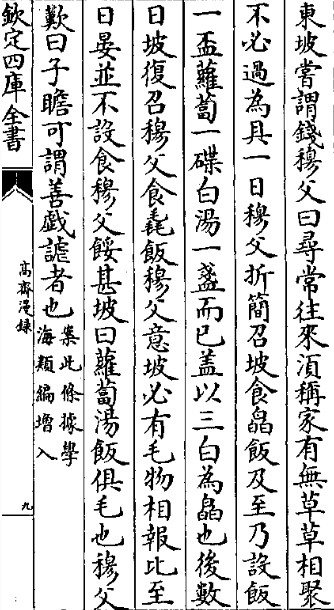 東坡嘗謂錢穆父曰尋常往來湏稱家有無草草相聚
不必過為具一日穆父折簡召坡食皛飯及至乃設飯
一盃蘿蔔一碟白湯一盞而已盖以三白為皛也後數
日坡復召穆父食毳飯穆父意坡必有毛物相報比至
日晏並不設食穆父餒甚坡曰蘿蔔湯飯俱毛也穆父
歎曰子瞻可謂善戯謔者也
案此條據學
海類編增入
欽定四庫全書
髙齋漫録
九